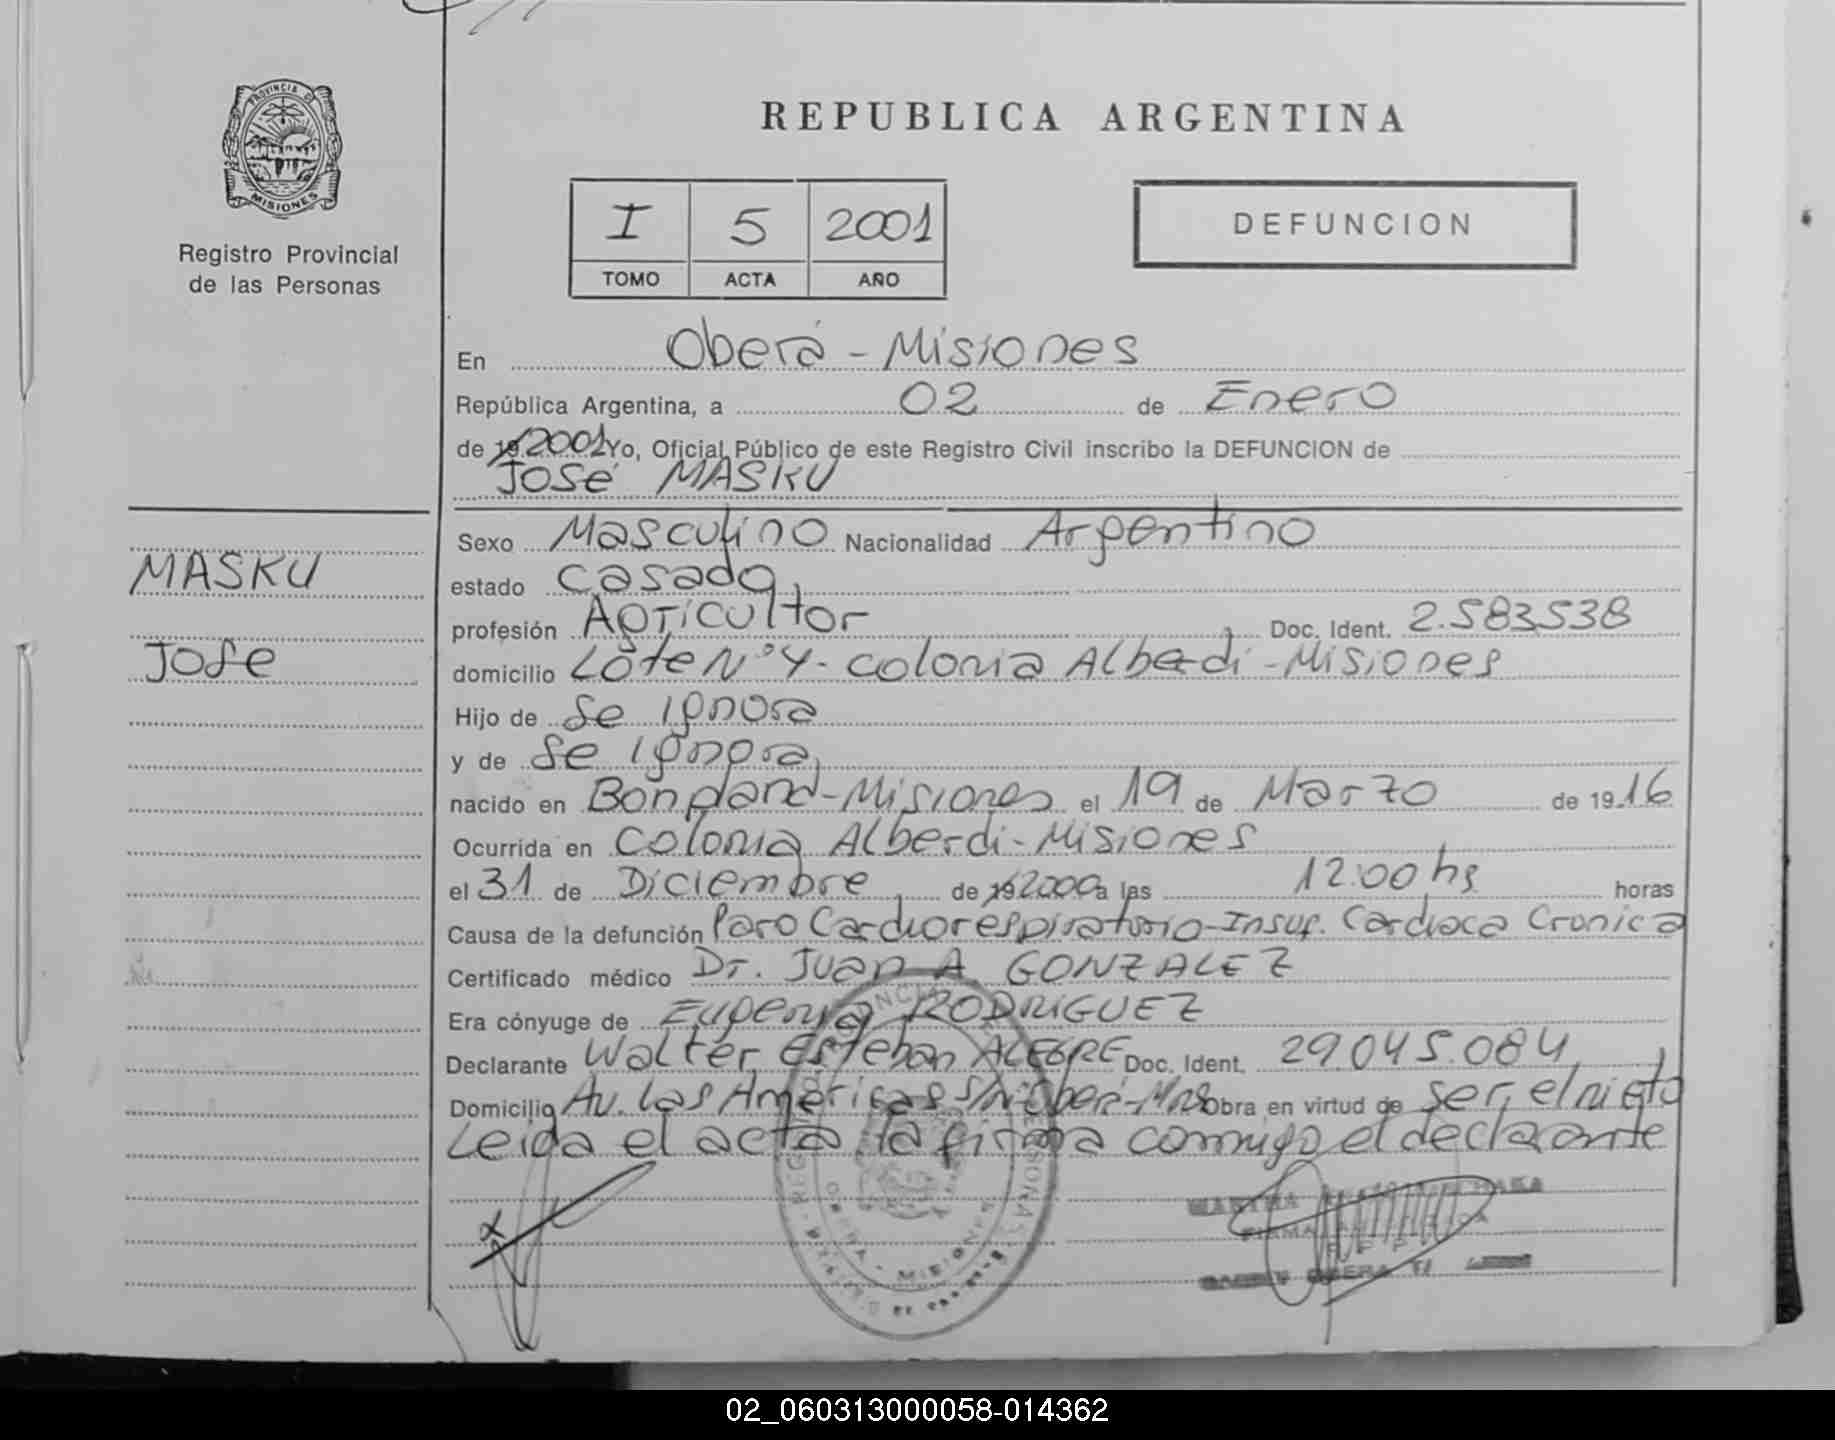 PROVINCIA DE
MISIONES
Registro Provincial
de las Personas
REPUBLICA ARGENTINA
I 5 2001
TOMO ACTA AÑO
DEFUNCION
En Oberá - Misiones
República Argentina, a 02 de Enero
de 19 2001 Yo, Oficial Público de este Registro Civil inscribo la DEFUNCION de
José MASKU
MASKU
José
Sexo Masculino Nacionalidad Argentino
estado casado
profesión Agricultor Doc. Ident. 2.583.538
domicilio Lote N° 4 - colonia Alberdi - Misiones
Hijo de se ignora
y de se ignora
nacido en Bonpland - Misiones el 19 de Marzo de 1916
Ocurrida en Colonia Alberdi - Misiones
el 31 de Diciembre de 19 2000 a las 12:00 hs horas
Causa de la defunción Paro Cardiorespiratorio - Insuf. Cardiaca Cronica
Certificado médico Dr. Juan A GONZALEZ
Era cónyuge de Eugenia RODRIGUEZ
Declarante Walter Esteban ALEGRE Doc. Ident. 29.045.084
Domicilio Av. Las Américas S/N - Oberá - Mnes Obra en virtud de ser el nieto
Leida el acta la firma conmigo el declarante
OBERA - MISIONES
02_060313000058-014362